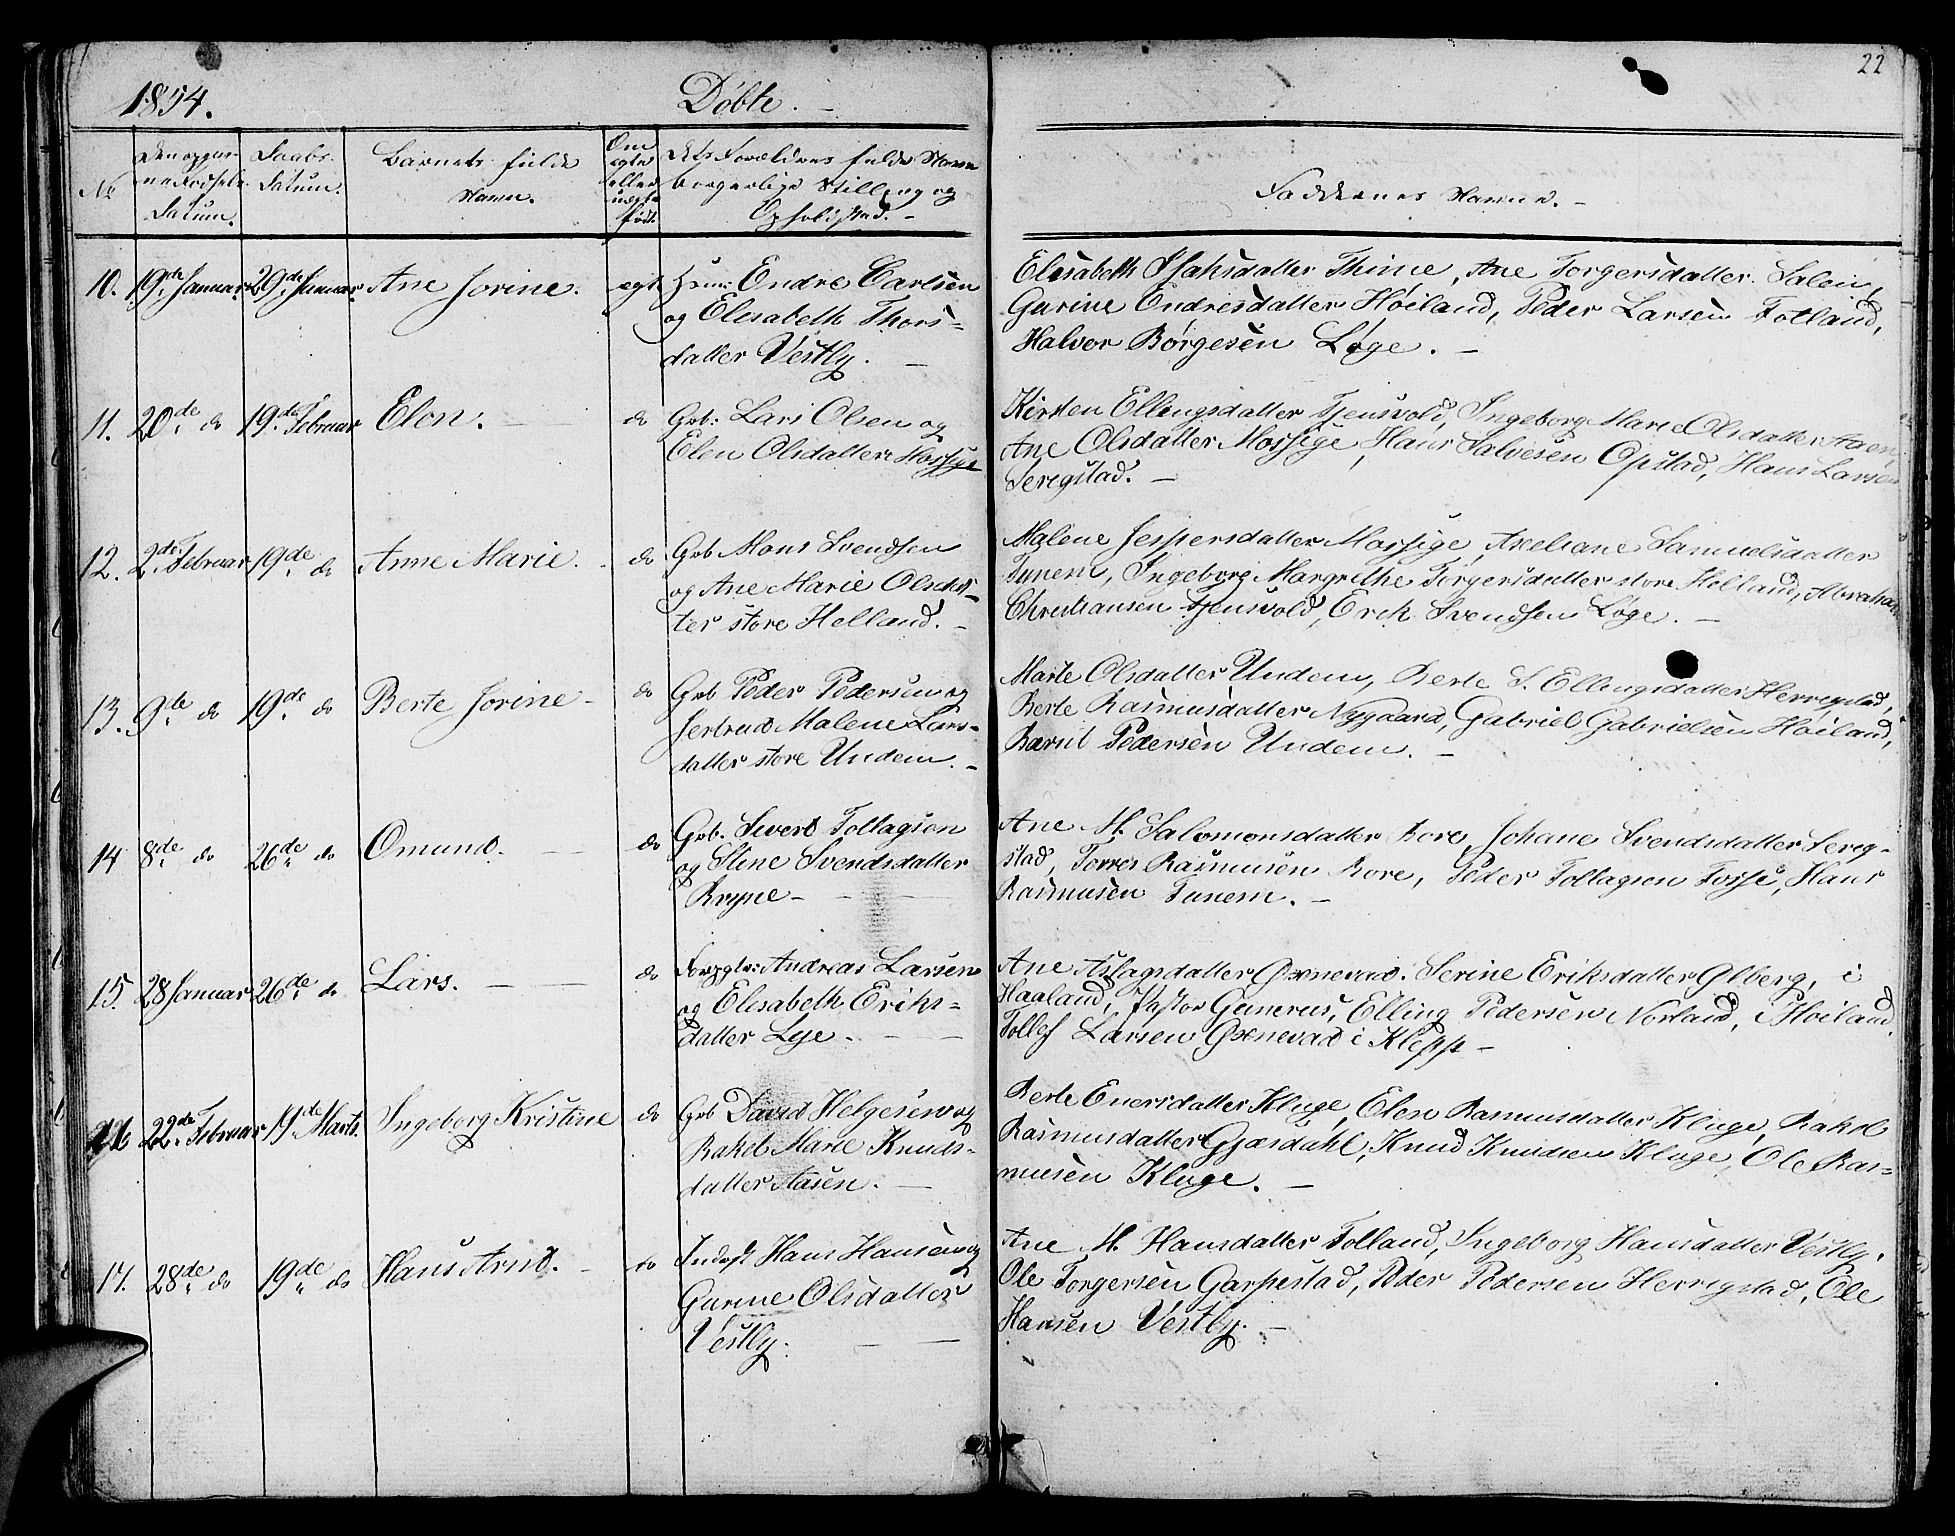 22
1854. Døbte. -
No
Den opgiv-
ne Fødsels
Datum.
Daabs
Datum.
Barnets fulde
Navn.
Om
egte
eller
uegte
født
Forældres fulde Navn
borgerlige Stilling og
Opholdsted. -
Faddernes Navne. -
10. 19de Januar 29de Januar Ane Jorine. egt Huus: Endre Carlsen
og Elisabeth Thors-
datter Vestly. -
Elisabeth Isaksdatter Thime, Ane Torgersdatter Salen,
Gurine Endresdatter Høiland, Peder Larsen Fotland,
Halvor Børgesen Løge. -
11. 20de do 19de Februar Elen. - do Grb: Lars Olsen og
Elen Olsdatter Mossige
Kirsten Ellingsdatter Tjensvold, Ingeborg Marie Olsdatter Aaen,
Ane Olsdatter Mossige, Hans Salvesen Opstad, Hans Larsen
Seregstad. -
12. 2de Februar 19de do Anne Marie. - do Grb Mons Svendsen
og Ane Marie Olsdat-
ter store Helland. -
Malene Jespersdatter Mossige, Axeliane Samuelsdatter
Tunem, Ingeborg Margrethe Torgersdatter store Helland, Abraham
Christiansen Tjensvold, Erik Svendsen Løge. -
13. 9de do 19de do Berte Jorine - do Grb Peder Pedersen og
Jertrud Malene Lars-
datter store Undem. -
Marte Olsdatter Undem, Berte S. Ellingsdatter Herregstad,
Berte Rasmusdatter Nygaard, Gabriel Gabrielsen Høiland,
Baruld Pedersen Undem. -
14 8de do 26de do Omund. - do Grb. Sivert Tollagsen
og Stine Svendsdatter
Bryne -
Ane M. Salomonsdatter Bore, Johane Svendsdatter Sereg-
stad, Torres Rasmusen Bore, Peder Tollagsen Fosse, Hans
Rasmusen Tunem. -
15. 28 Januar 26de do Lars. - - do Forpgtr: Andreas Larsen
og Elisabeth Eriks-
datter Lye. - -
Ane Aslagsdatter Øxnevad. Serine Eriksdatter Ølberg, i
Haaland, Pastor Gunerus, Elling Pedersen Norland, i Høiland,
Tollef Larsen Øxnevad i Klepp -
16 22de Februar 19de Marts. Ingeborg Kristine do Grb David Helgesen og
Rakel Marie Knuds-
datter Aasen. -
Berte Enersdatter Kluge, Elen Rasmusdatter Kluge, Rakel
Rasmusdatter Gjæsdahl, Knud Knudsen Kluge, Ole Ras-
musen Kluge. -
17. 28de do 19de do Hans Arnd. - do Inderst Hans Hansen og
Gurine Olsdatter
Vestly. -
Ane M. Hansdatter Folland, Ingeborg Hansdatter Vestly,
Ole Torgersen Garpestad, Peder Pedersen Herregstad, Ole
Hansen Vestly. -